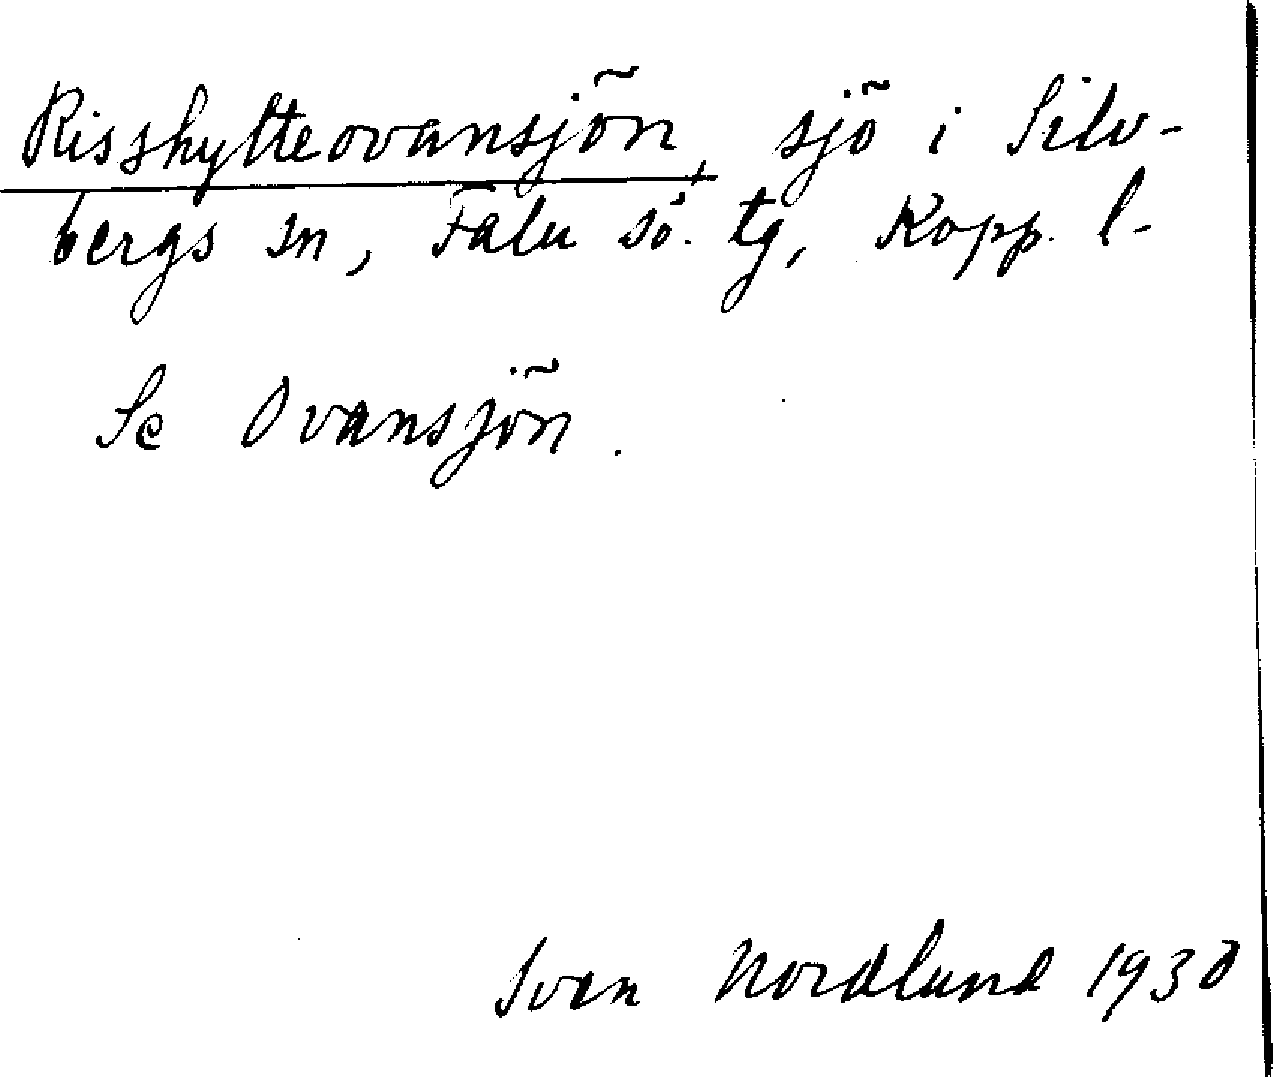 Risshytteovansjön, sjö i Silv-
bergs sn, Falu sö. tg, Kopp. l-
Se Ovansjön.
Ivan Nordlund 1930